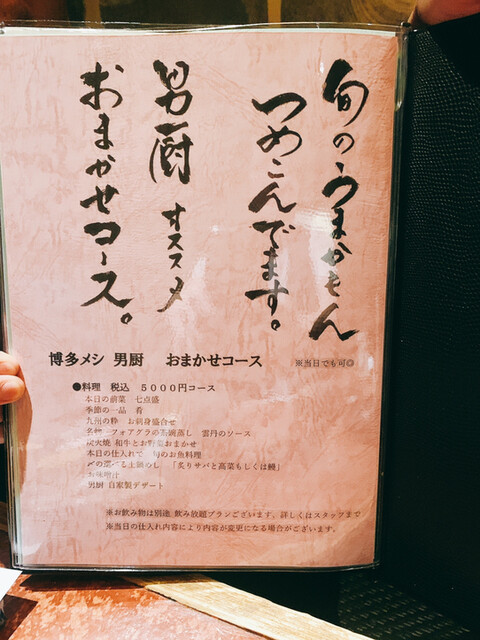 旬のうまかもん
つめこんでます。
男厨 オススメ
おまかせコース。
博多メシ 男厨 おまかせコース ※当日でも可◎
●料理 税込 5000円コース
本日の前菜 七点盛
季節の一品 肴
九州の粋 お刺身盛合せ
名物 フォアグラの茶碗蒸し 雲丹のソース
炭火焼 和牛とお野菜おまかせ
本日の仕入れで 旬のお魚料理
〆の選べる土鍋めし 「炙りサバと高菜もしくは鰻」
お味噌汁
男厨 自家製デザート
※お飲み物は別途 飲み放題プランございます。詳しくはスタッフまで
※当日の仕入れ内容により内容が変更になる場合がございます。